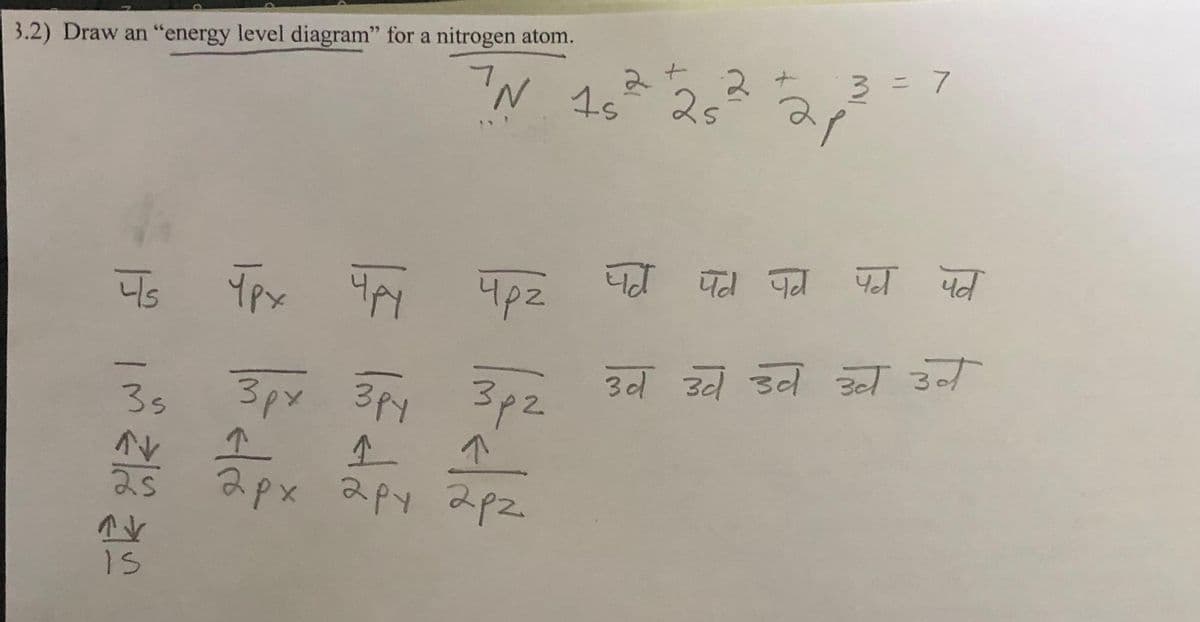 3.2) Draw an “energy level diagram” for a nitrogen atom.
7N 1s² + 2s² + 2p³ = 7
4s 4px 4py 4pz 4d 4d 4d 4d 4d
3s 3px 3py 3pz 3d 3d 3d 3d 3d
↑↓ ↑ ↑ ↑
2s 2px 2py 2pz
↑↓
1s